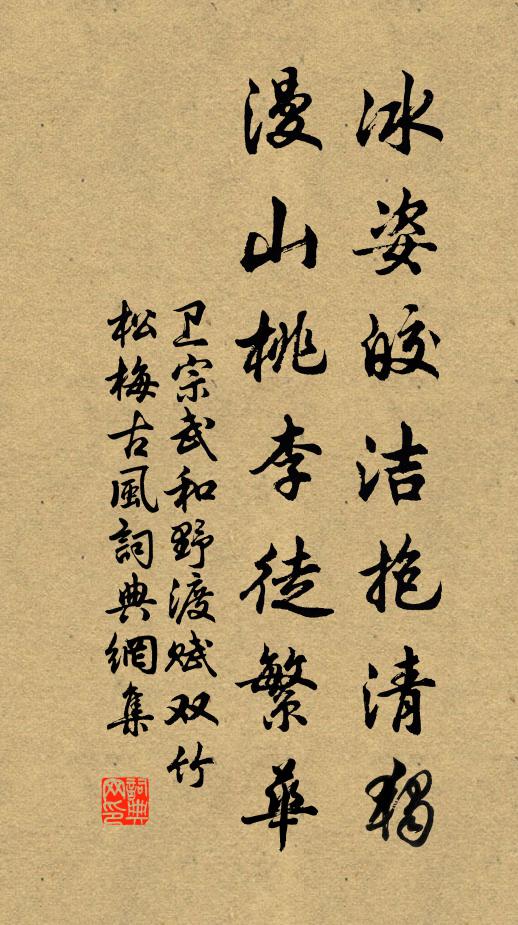 冰姿皎洁抱清独
漫山桃李徒繁華
卫宗武和野渡赋双竹
松梅古風詞典網集
詞典网印